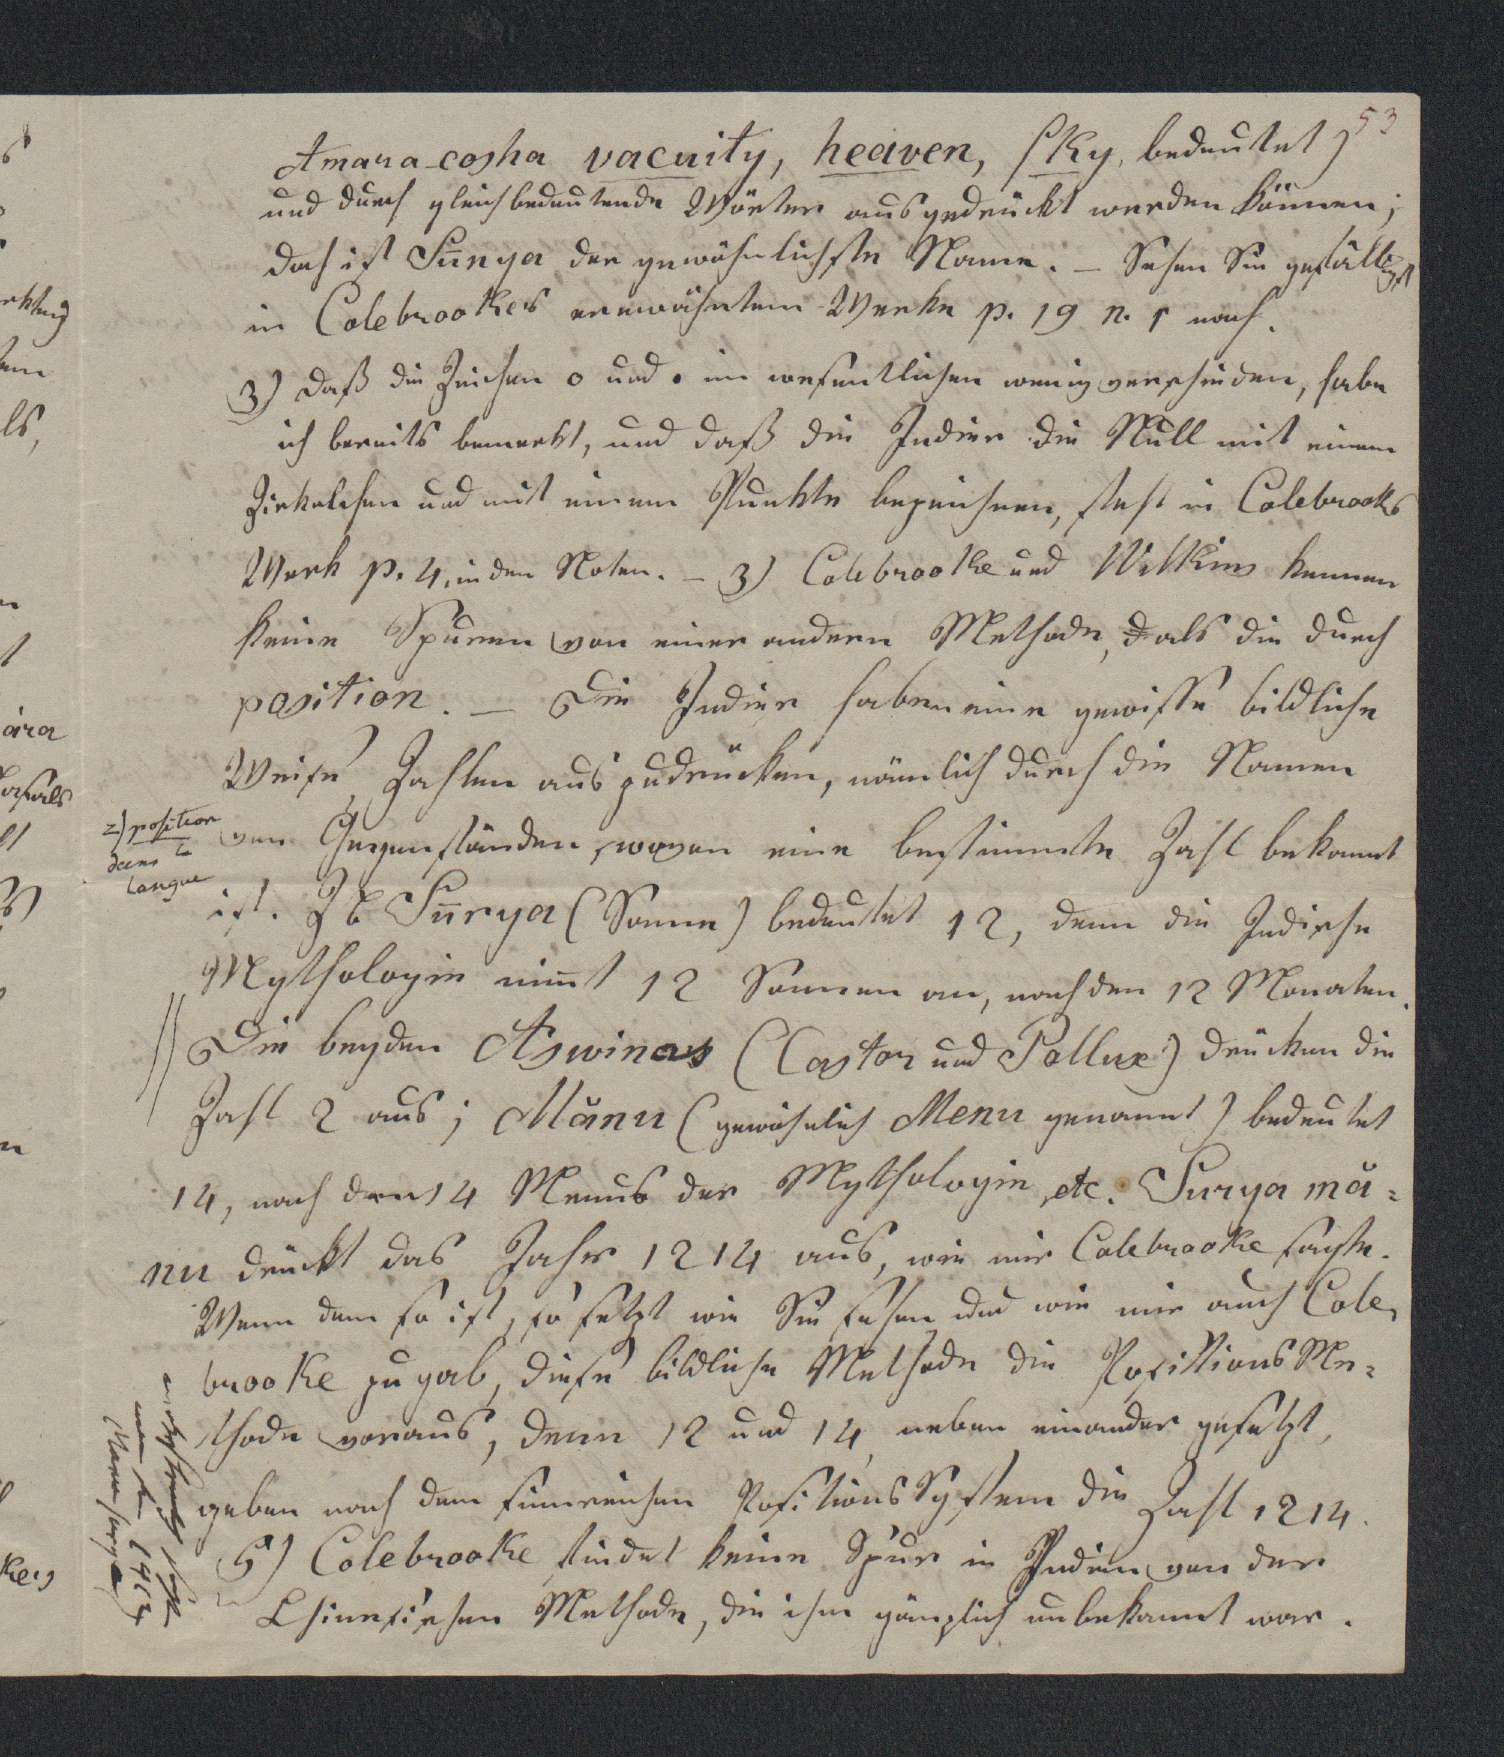 53
Amara-cosha vacuity, heaven, sky, bedeutet)
und durch gleichbedeutende Wörter ausgedrückt werden können;
doch ist Sūnya der gewöhnlichste Name. – Sehen Sie gefälligst
in Colebrookes erwähntem Werke p. 19 n. 1 nach.
3) Daß die Zeichen o und . im wesentlichen wenig verschieden, habe
ich bereits bemerkt, und daß die Indier die Null mit einem
Zirkelchen und mit einem Punkte bezeichnen, steht in Colebrooks
Werk p. 4, in den Noten. – 3) Colebrooke und Wilkins kennen
keine Spuren von einer andern Methode, als die durch
position. — Die Indier haben eine gewisse bildliche
Weise, Zahlen auszudrücken, nämlich durch die Namen
von Gegenständen, wovon eine bestimmte Zahl bekannt
ist. ZB Sūrya (Sonne) bedeutet 12, denn die Indische
Mythologie nim̄t 12 Sonnen an, nach den 12 Monaten.
Die beyden Aswinas (Castor und Pollux) drücken die
Zahl 2 aus; Mănu (gewöhnlich Menu genannt) bedeutet
14, nach den 14 Menus der Mythologie etc. Surya mă=
nu drückt das Jahr 1214 aus, wie mir Colebrooke sagte.
Wenn dem so ist, so setzt wie Sie sehen und wie mir auch Cole,
brooke zugab, diese bildliche Methode die PositionsMe=
thode voraus, denn 12 und 14, neben einander gesetzt,
geben nach dem sinnreichen PositionsSystem die Zahl 1214.
5) Colebrooke findet keine Spur in Indien von der
Chinesischen Methode, die ihm gänzlich unbekannt war.
2) position
dans la
langue
1412
Manu surya